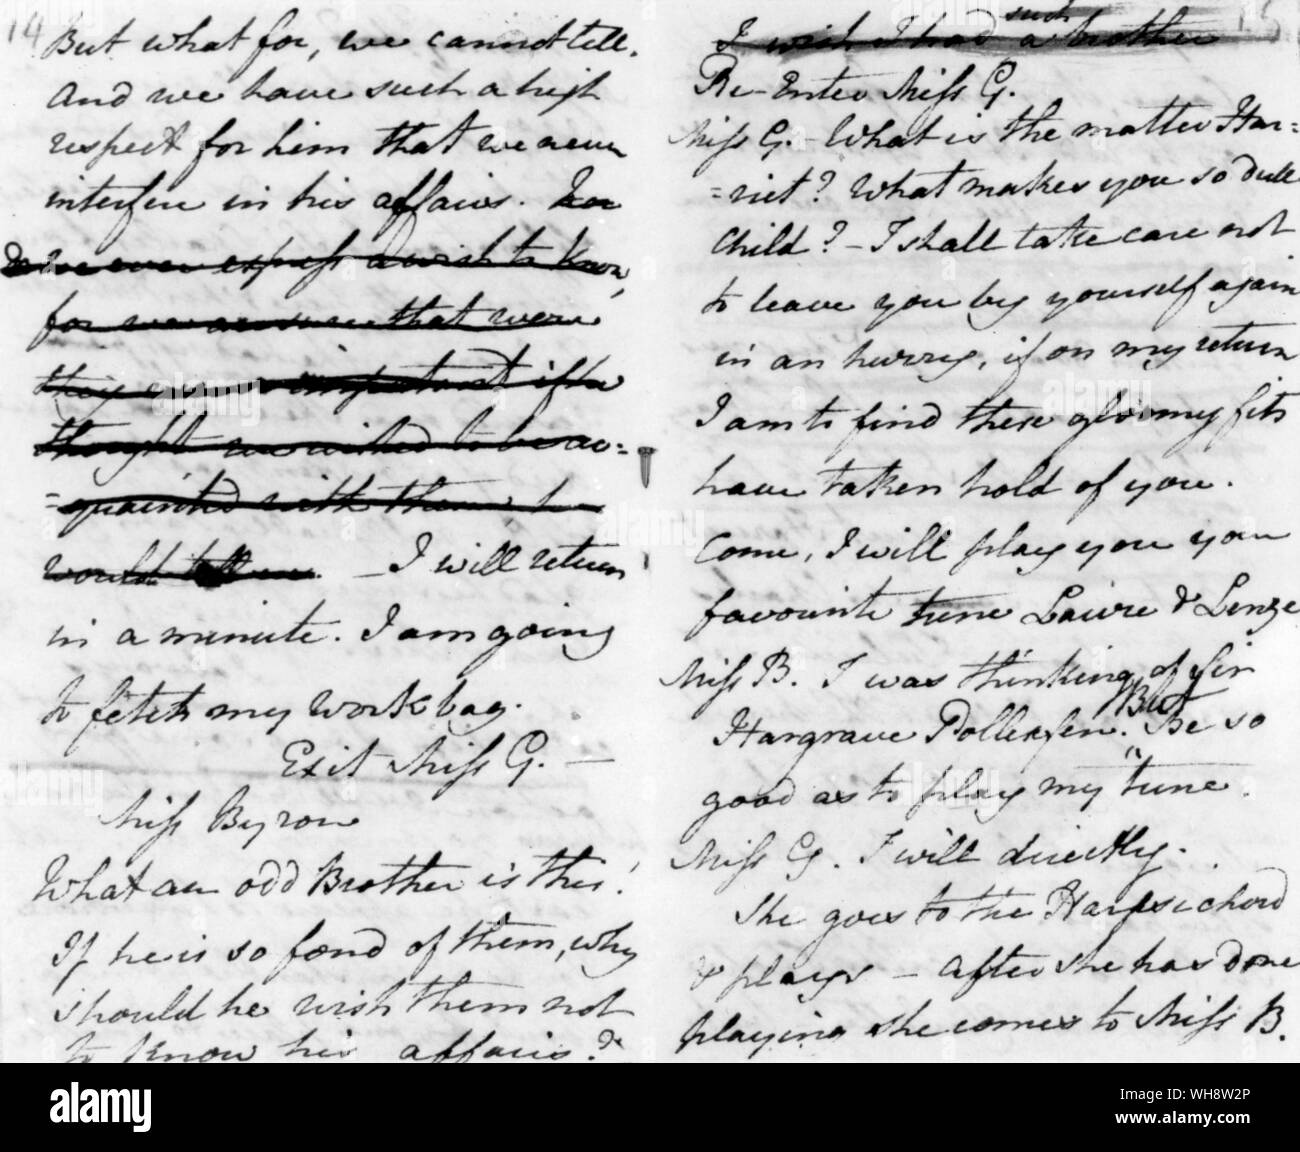 14
But what for, we cannot tell.
And we have such a high
respect for him that we never
interfere in his affairs. 
we ever express a wish to know,
for we are sure that were
they important if he
thought we wished to be ac=
=quainted with them he
would tell us. – I will return
in a minute. I am going
to fetch my work bag.
Exit Miss G. –
Miss Byron
What an odd Brother is this!
If he is so fond of them, why
should he wish them not
to know his affairs?
such
I wish I had a brother
Re-Enter Miss G.
Miss G. – What is the matter Har=
=riet? What makes you so dull
child? – I shall take care not
to leave you by yourself again
in an hurry, if on my return
I am to find these gloomy fits
have taken hold of you.
Come, I will play you your
favourite tune Laure & Lenze
Miss B. I was thinking of Sir
Hargrave Pollexfen. But Be so
good as to play my "tune.
Miss G. I will directly.
She goes to the Harpsichord
& plays – After she has done
playing she comes to Miss B.
alamy
alamy
alamy
alamy
alamy
alamy
alamy
Image ID: WH8W2P
www.alamy.com